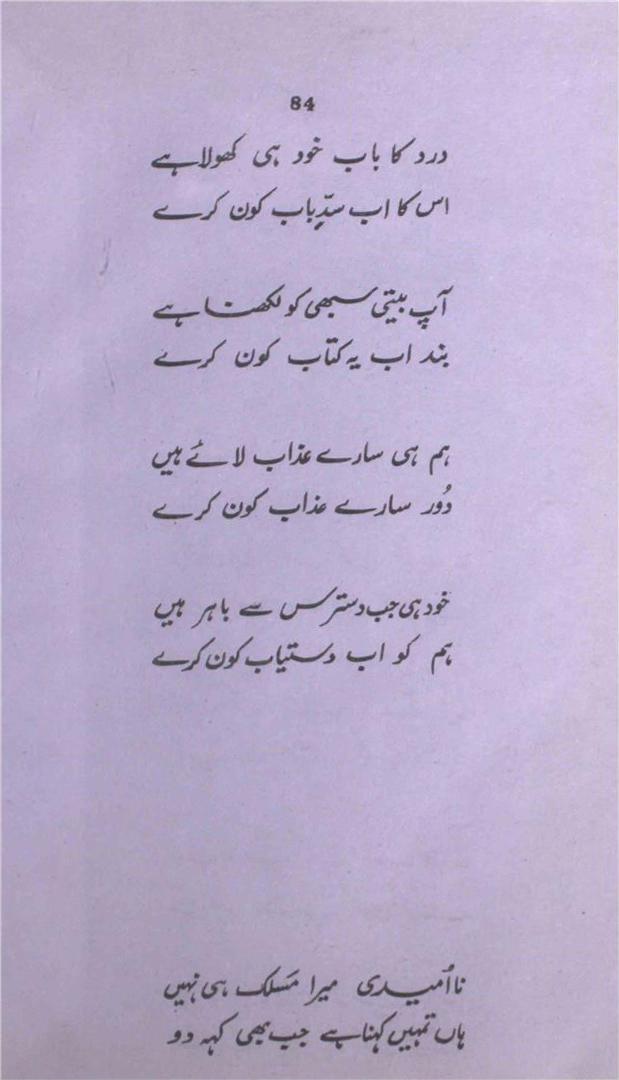 84
درد کا باب خود ہی کھولا ہے
اس کا اب سدِّباب کون کرے
آپ بیتی سبھی کو لکھنا ہے
بند اب یہ کتاب کون کرے
ہم ہی سارے عذاب لائے ہیں
دُور سارے عذاب کون کرے
خود ہی جب دسترس سے باہر ہیں
ہم کو اب دستیاب کون کرے
نااُمیدی میرا مَسلک ہی نہیں
ہاں تمہیں کہنا ہے جب بھی کہہ دو